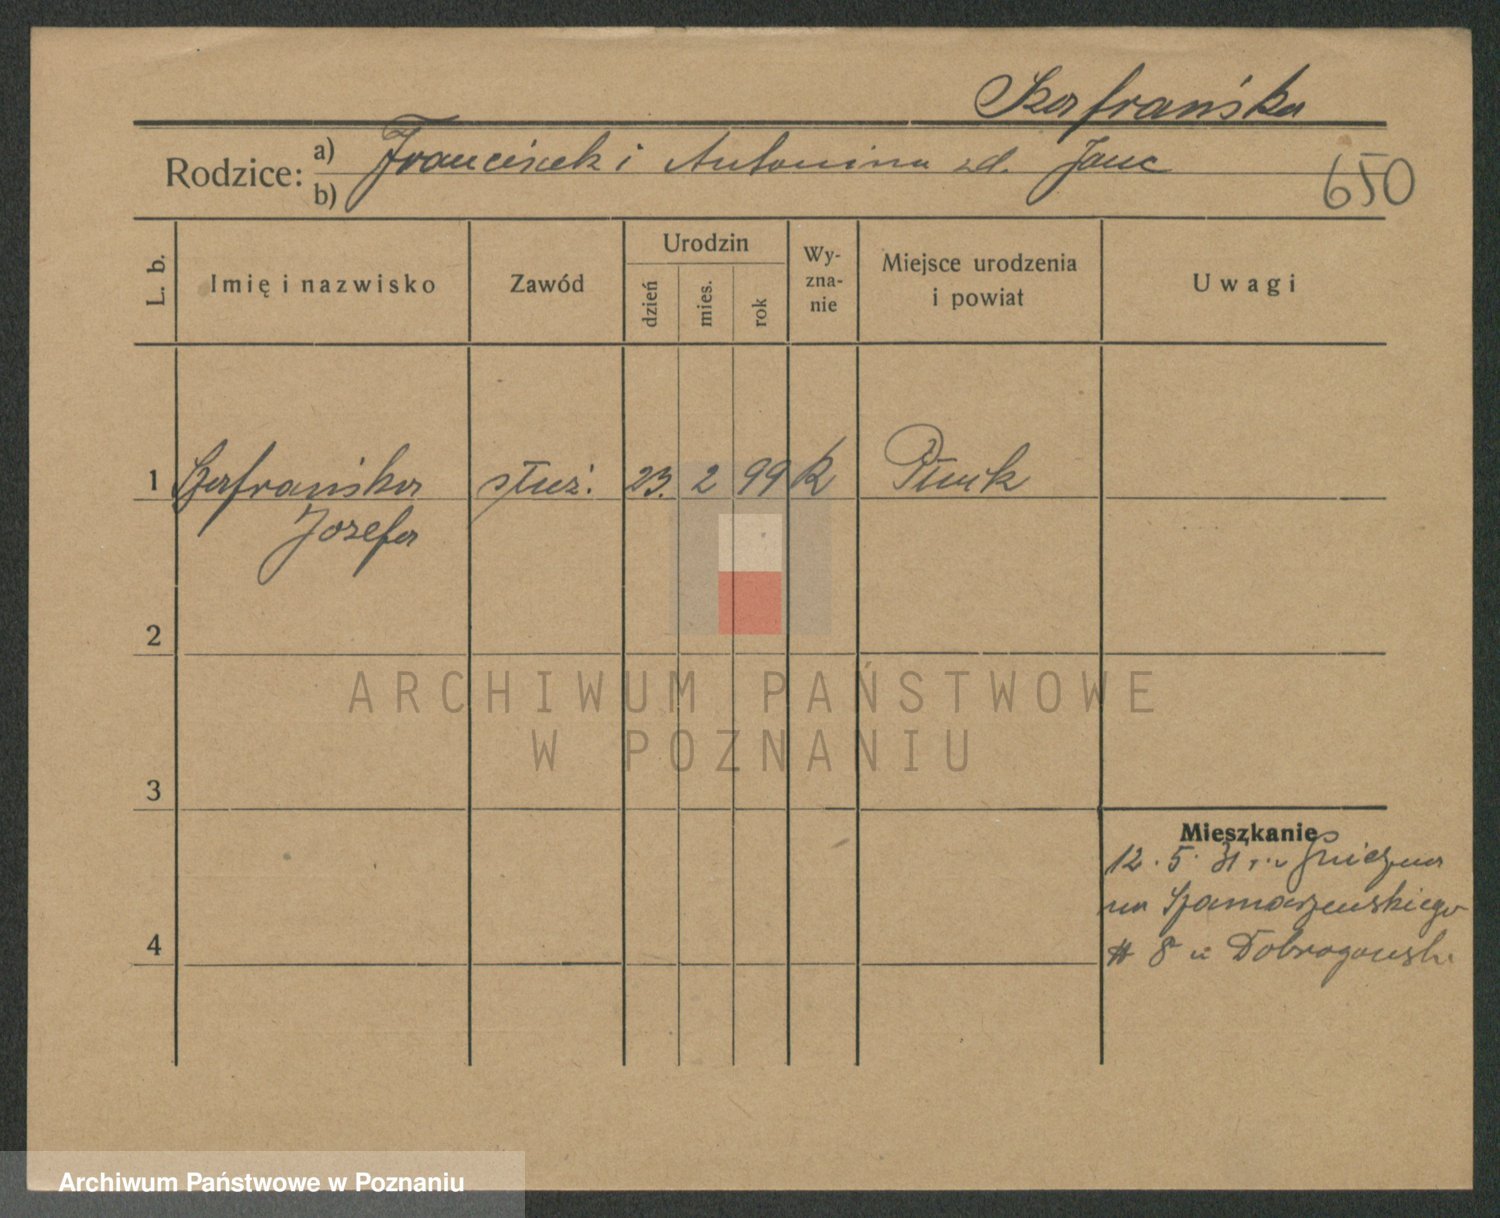 Szafrańska
Rodzice: a) Franciszek i Antonina zd. Janc
b)
650
L. b.
Imię i nazwisko
Zawód
Urodzin
dzień
mies.
rok
Wy-
zna-
nie
Miejsce urodzenia
i powiat
Uwagi
1 Szafrańska służ. 23. 2 99 k
Józefa
2
ARCHIWUM PAŃSTWOWE
W POZNANIU
3
Mieszkanie
12. 5. 31 r. z Gniezna
na Szamarzewskiego
# 8 u
4
Archiwum Państwowe w Poznaniu